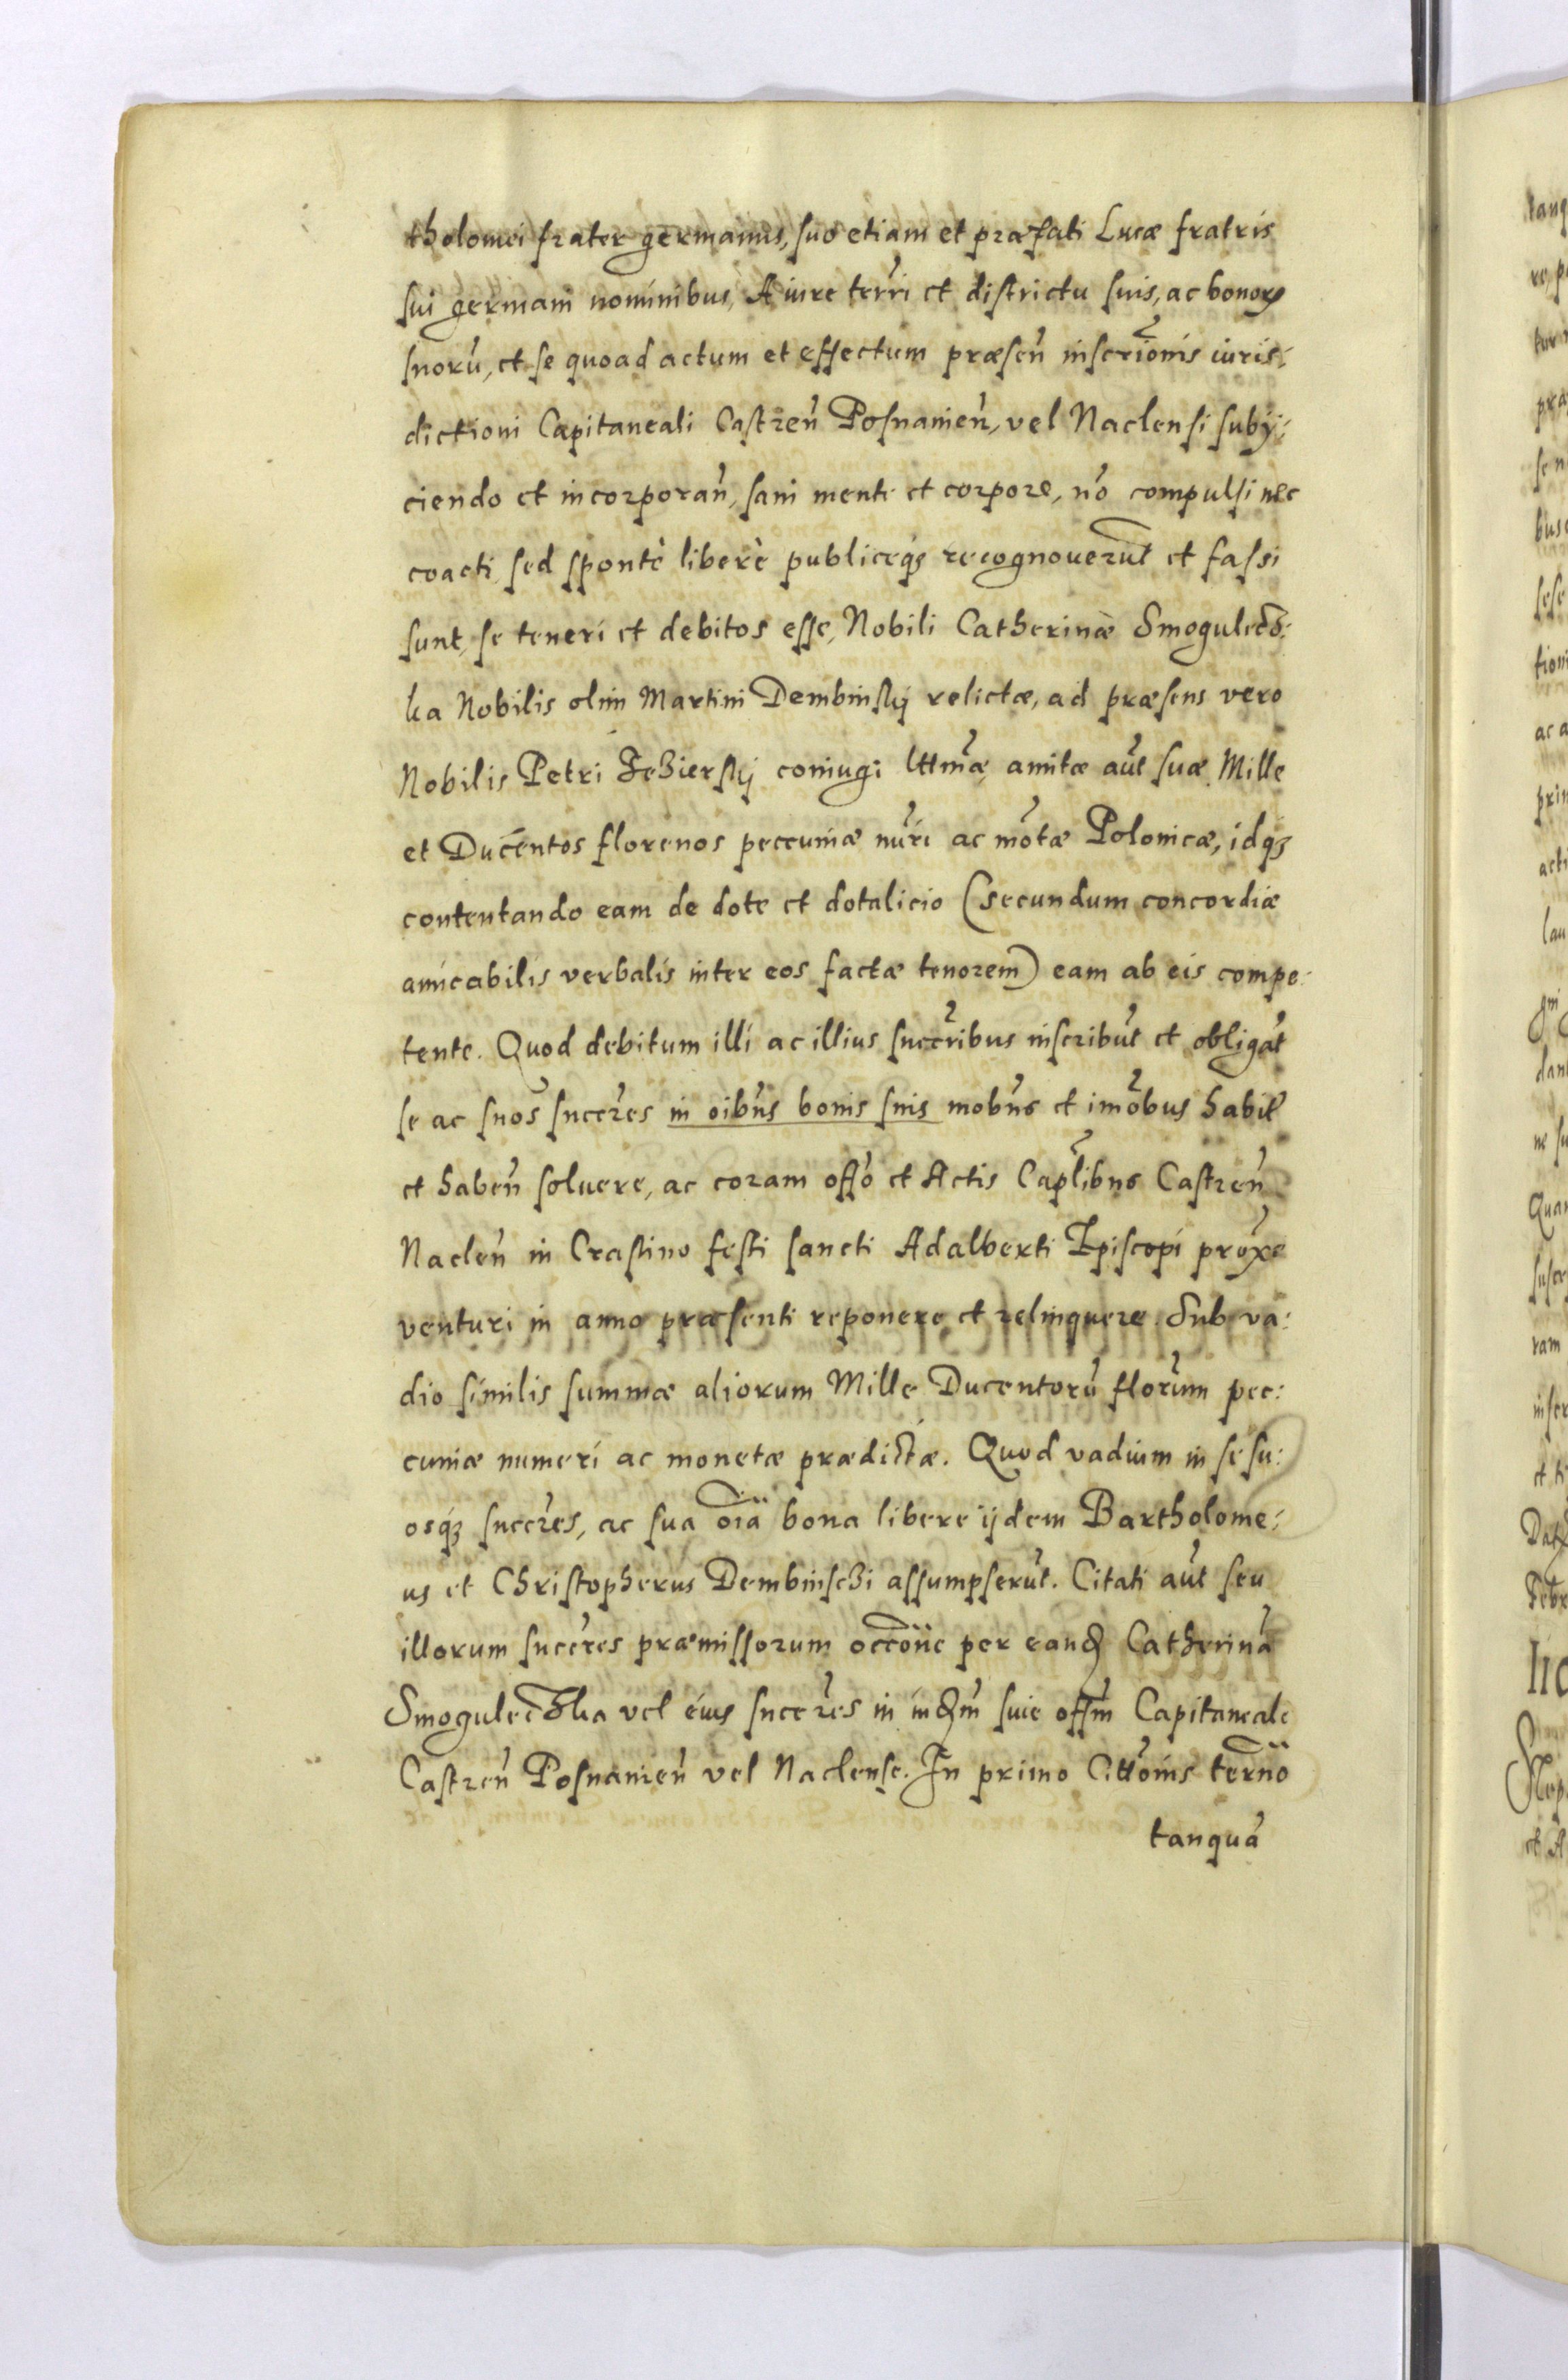 tholomei frater germanus, suo etiam et præfati Lucæ fratris
sui germani nominibus, A iure terri et districtu suis, ac bonorꝝ
suorũ, et se quoad actum et effectum præsen̄ inscrionis iuris:
dictioni Capitaneali Castren̄ Posnanien̄, vel Naclensi subij:
ciendo et incorporan̄, sani mente et corpore, nõ compulsi nec
coacti, sed spontè liberè publiceqꝫ recognoverũt et fassi
sunt, se teneri et debitos esse, Nobili Catherinæ
ka Nobilis olim Martini Dembinskij relictæ, ad præsens vero
Nobilis Petri Jezierskij coniugi lttimæ, amitæ aũt suæ Mille
et Ducentos florenos peccuniæ nũri ac mõtæ Polonicæ, idqꝫ
contentando eam de dote et dotalicio (secundum concordiæ
amicabilis verbalis inter eos factæ tenorem) eam ab eis compe:
tente. Quod debitum illi ac illius succribus inscribũt et obligãt
se ac suos succres in oibus bonis suis mobus et imõbus habit
et haben̄ solvere, ac coram offo et Actis Caplibus Castren̄
Naclen̄ in Crastino festi sancti Adalberti Episcopi proxe
venturi in anno præsenti reponere et relinquere. Sub va:
dio similis summæ aliorum Mille Ducentorũ florum pec:
cuniæ numeri ac monetæ prædictæ. Quod vadium in se su:
osqꝫ succres, ac sua oia bona libere ijdem Bartholome:
us et Christopherus Dembinski assumpserũt. Citati aũt seu
illorum succres præmissorum occõne per eandꝫ Catherinã
vel eius succres in sive offm Capitaneale
Castren̄ Posnanien̄ vel Naclense. In primo Cittõnis termo
tanquã